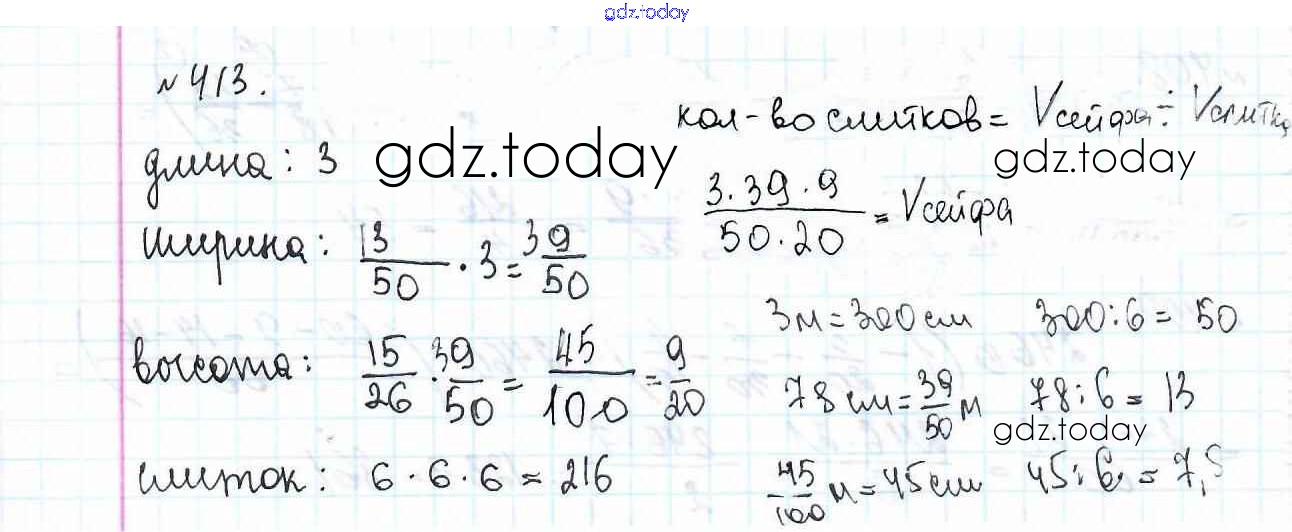 gdz.today
№ 413.
кол-во слитков = Vсейфа ÷ Vслитка
длина: 3
gdz.today
gdz.today
3·39·9/50·20 = Vсейфа
ширина: 13/50 · 3 = 39/50
3м = 300 см 300:6 = 50
высота: 15/26 · 39/50 = 45/100 = 9/20
78 см = 39/50 м 78:6 = 13
gdz.today
слиток: 6·6·6 = 216
45/100 м = 45 см 45:6 = 7,5